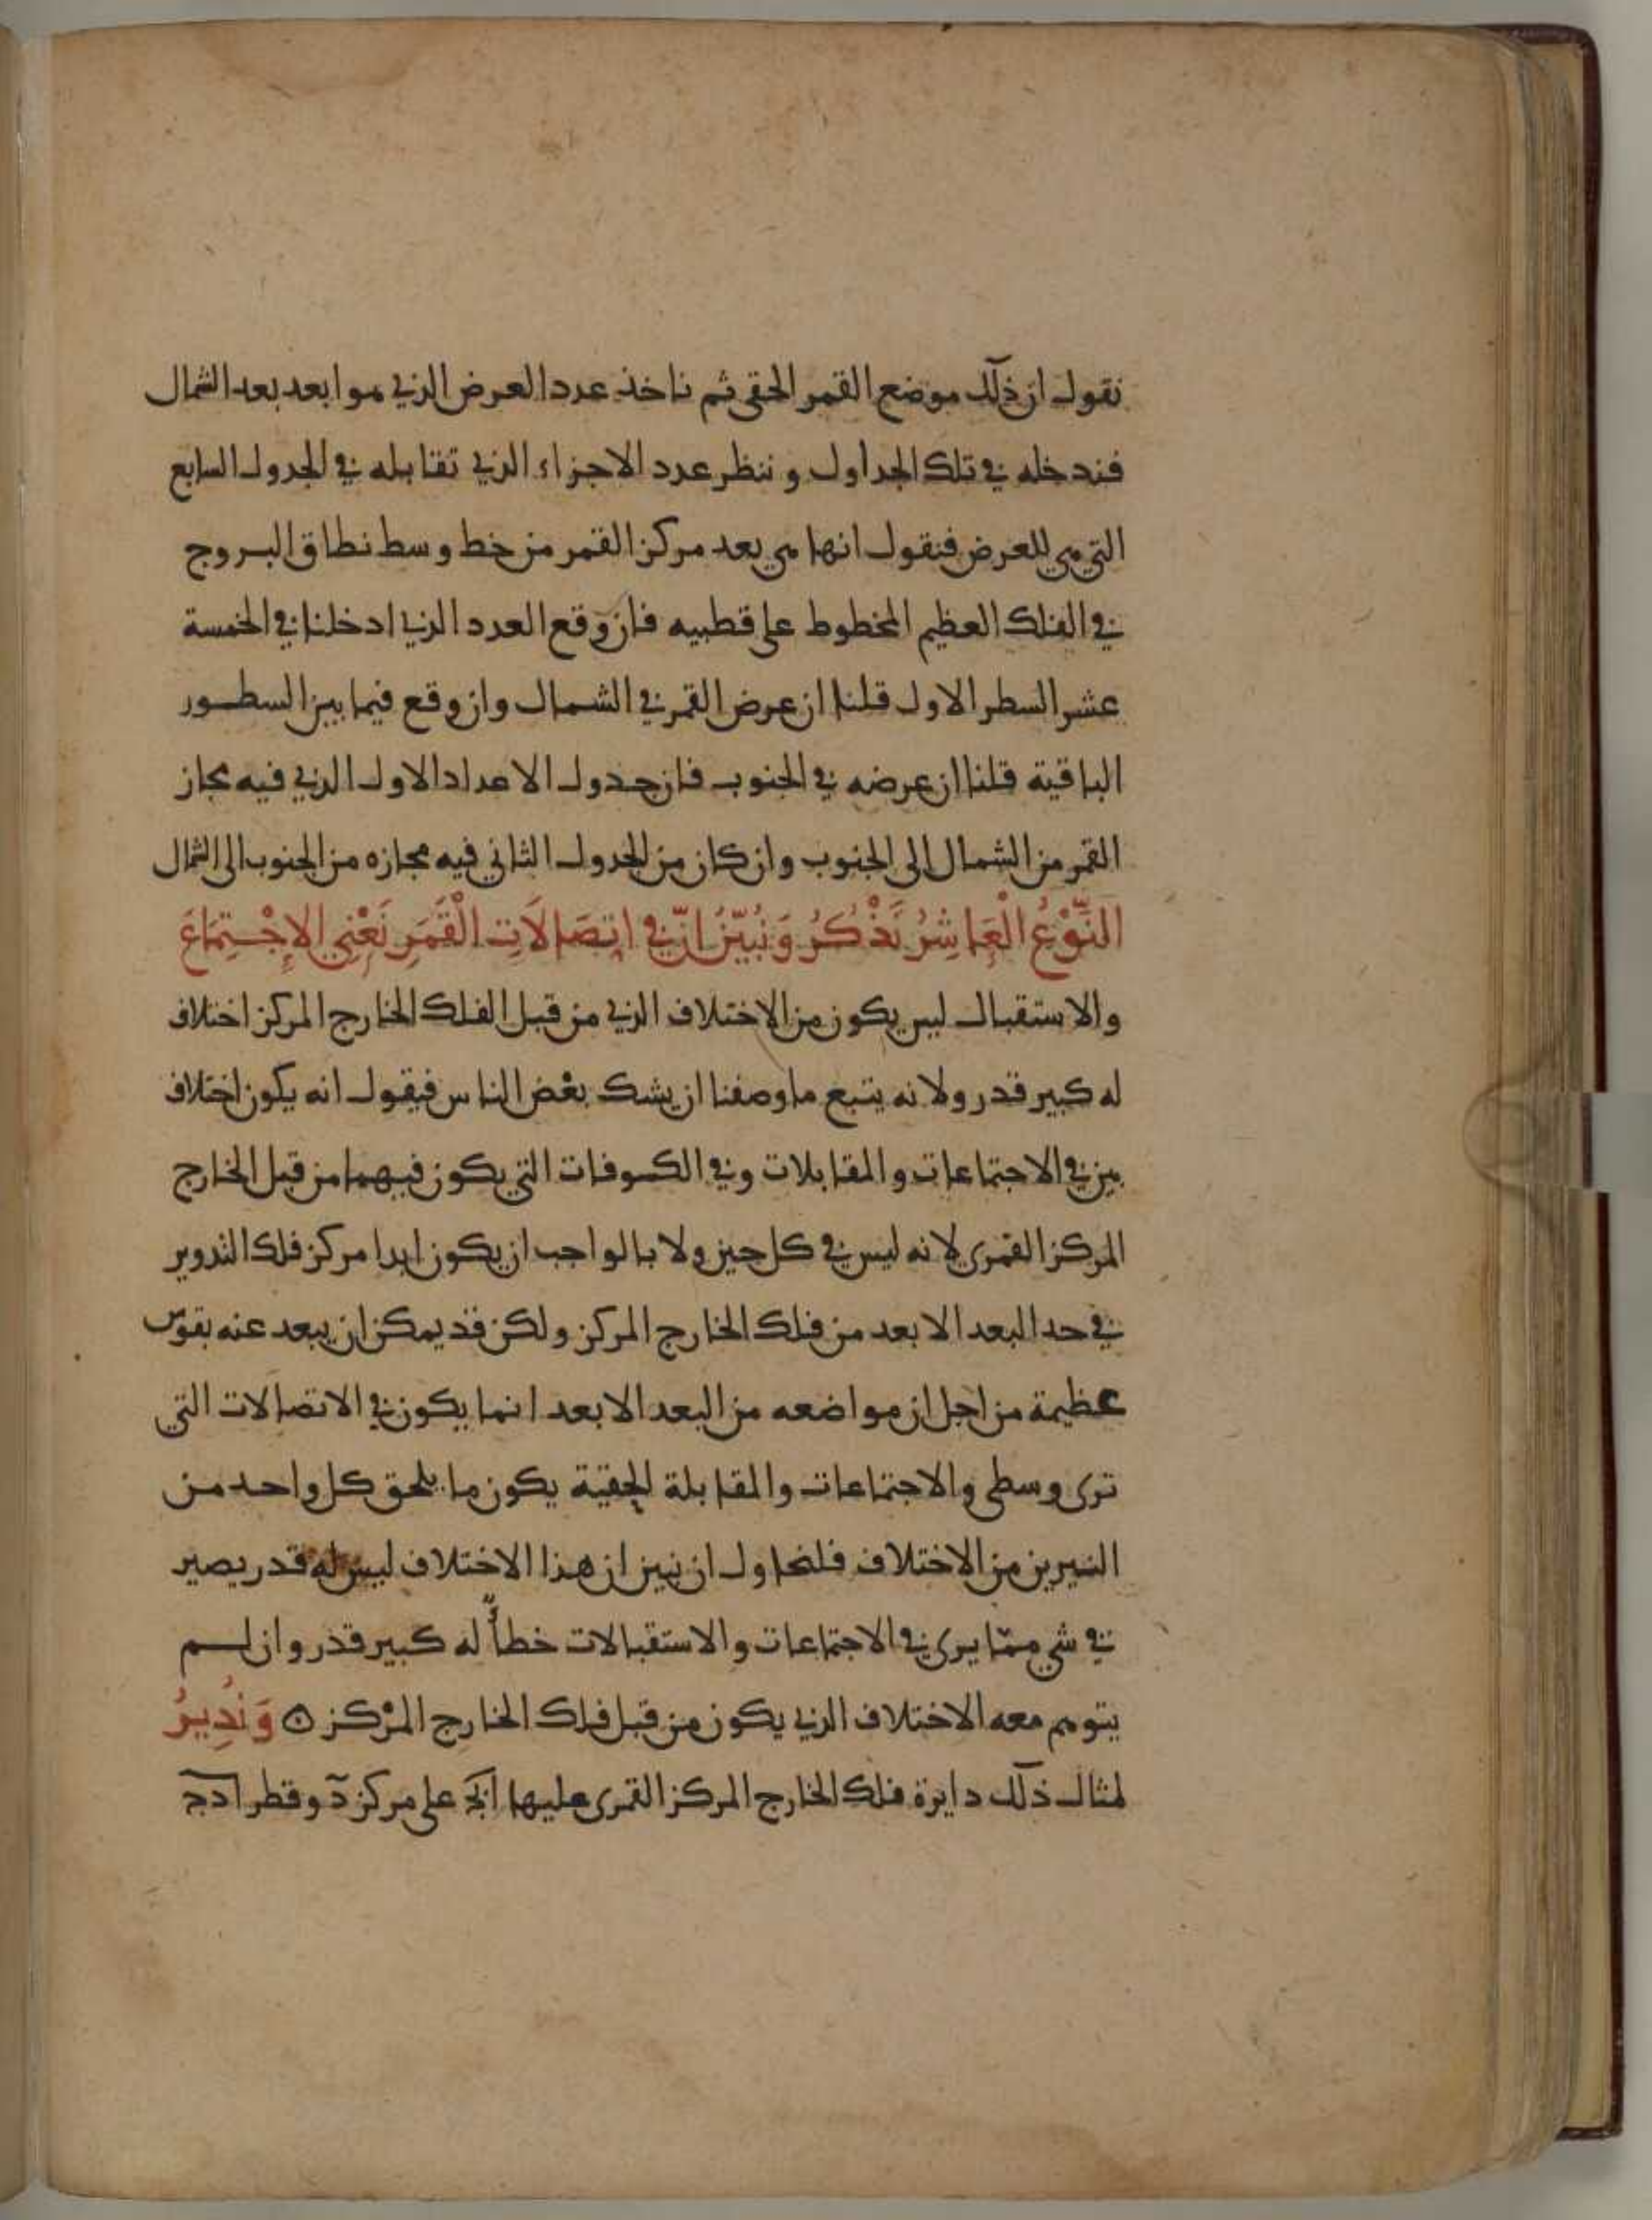 نقول ان ذلك موضع القمر الحقي ثم ناخذ عدد العرض الذي هو ابعد بعد الشمال
فندخله في تلك الجداول و ننظر عدد الاجزاء الذي تقابله في الجدول السابع
التي هي للعرض فنقول انها هي بعد مركز القمر من خط وسط نطاق البروج
في الفلك العظيم المخطوط على قطبيه فان وقع العدد الذي ادخلنا في الخمسة
عشر السطر الاول قلنا ان عرض القمر في الشمال وان وقع فيما بين السطور
الباقية قلنا ان عرضه في الجنوب فان جدول الاعداد الاول الذي فيه مجاز
القمر من الشمال الى الجنوب وان كان من الجدول الثاني فيه مجازه من الجنوب الى الشمال
النَّوْعُ الْعَاشِرُ نَذْكُرُ وَنُبَيّنُ انّ في اتِصَالَاتِ الْقَمَرِ نَعْنِي الإِجْتِمَاعَ
والاستقبال ليس يكون من الاختلاف الذي من قبل الفلك الخارج المركز اختلاف
له كبير قدر ولانه يتبع ما وصفنا ان يشك بعْض الناس فيقول انه يكون اختلاف
بين في الاجتماعات والمقابلات وفي الكسوفات التي يكون فيهما من قبل الخارج
المركز القمري لانه ليس في كل حين ولا بالواجب ان يكون ابدا مركز فلك التدوير
في حد البعد الابعد من فلك الخارج المركز ولكن قد يمكن ان يبعد عنه بقوس
عظيمة من اجل ان مواضعه من البعد الابعد انما يكون في الاتصالات التي
ترى وسطى والاجتماعات والمقابلة الحقية يكون ما يلحق كل واحد من
النيرين من الاختلاف فلنحاول ان نبين ان هذا الاختلاف ليس له قدر يصير
في شي ممّا يرى في الاجتماعات والاستقبالات خطأً له كبير قدر وان لم
يتوهم معه الاختلاف الذي يكون من قبل فلك الخارج المرْكز ۞ وَنُدِيرُ
لمثال ذلك دايرة فلك الخارج المركز القمري عليها ابج على مركز د وقطر ادج